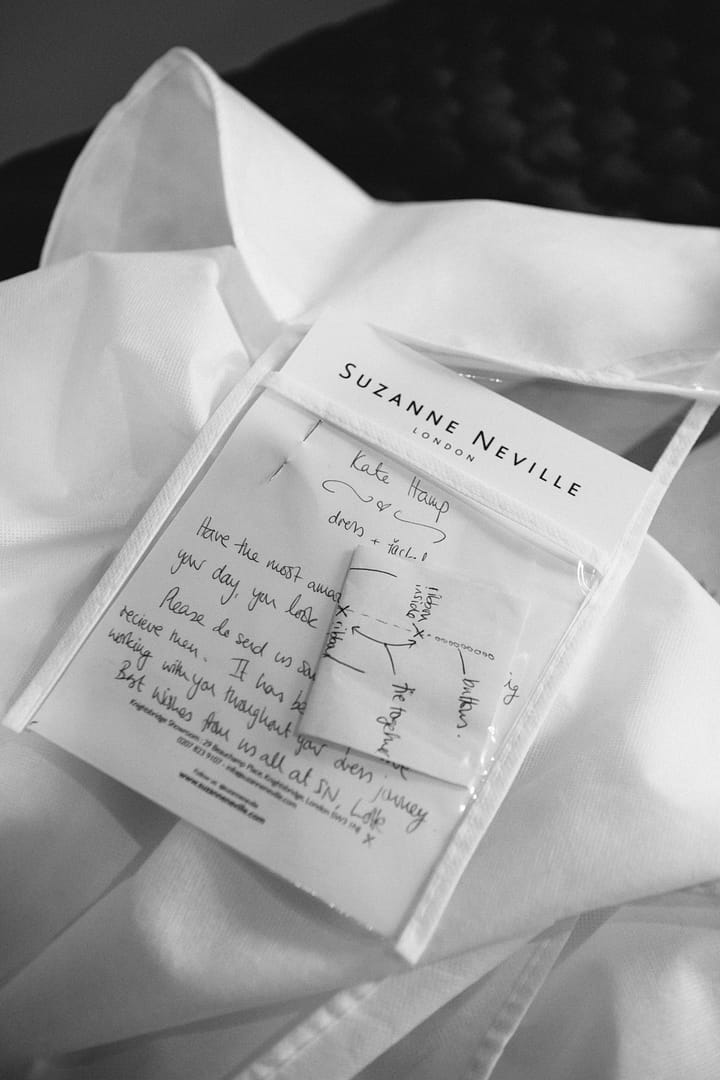 SUZANNE NEVILLE
LONDON
Kate Hamp
dress +
Have the most
your day, you look
Please do send us
recieve them. It has
working with you throughout your dress journey
Best wishes from us all at SN,
x
Knightsbridge Showroom : 29 Beauchamp Place, Knightsbridge, London SW3 1NJ
0207 823 9107 - info@suzanneneville.com
Follow us @suzanneneville
www.suzanneneville.com
ribbon
inside x
x ribbon
tie together
buttons.